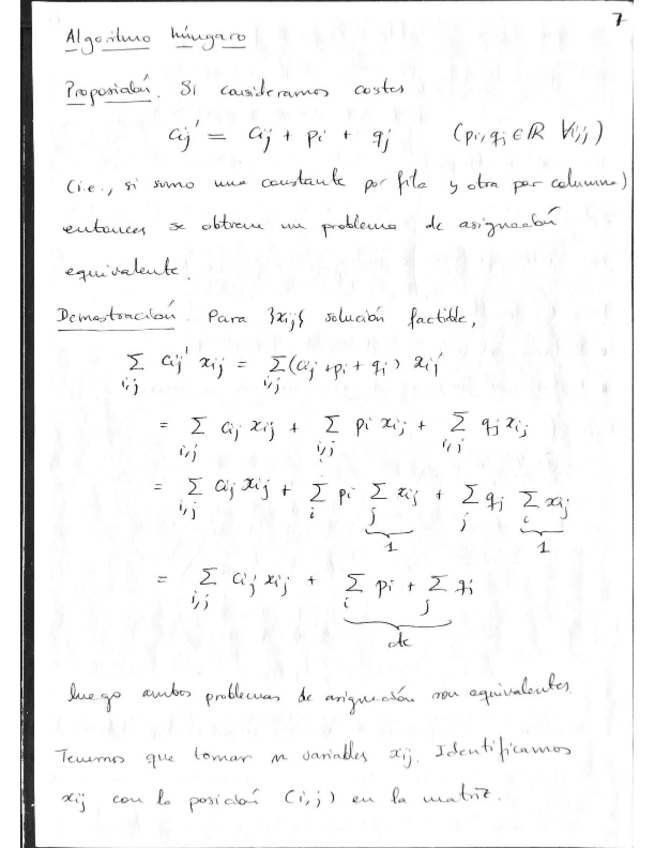 7
Algoritmo húngaro
Proposición. Si consideramos costes
cij' = cij + pi + qj (pi, qj ∈ ℝ ∀i,j)
(i.e., si sumo una constante por fila y otra por columna)
entonces se obtiene un problema de asignación
equivalente.
Demostración Para {xij} solución factible,
∑i,j cij' xij = ∑i,j (cij + pi + qj) xij
= ∑i,j cij xij + ∑i,j pi xij + ∑i,j qj xij
= ∑i,j cij xij + ∑i pi ∑j xij + ∑j qj ∑i xij
1 1
= ∑i,j cij xij + ∑i pi + ∑j qj
cte
luego ambos problemas de asignación son equivalentes.
Tenemos que tomar n variables xij. Identificamos
xij con la posición (i,j) en la matriz.